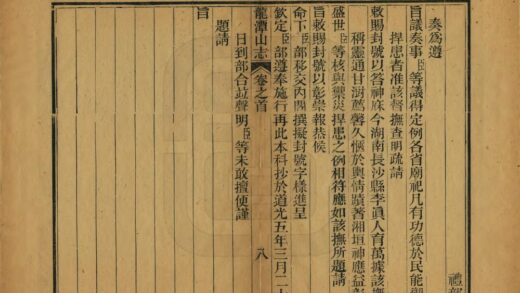 禮部
奏為遵
旨議奏事臣等議得定例各省廟祀凡有功德於民能禦
捍患者准該督撫查明疏請
敕賜封號以答神庥今湖南長沙縣李眞人育萬據該撫
稱靈通甘澍薦馨久愜於輿情蹟著湘垣神應益彰
盛世臣等核與禦災捍患之例相符應如該撫所題請
旨敕賜封號以彰崇報恭候
命下臣部移交內閣撰擬封號字樣進呈
欽定臣部遵奉施行再此本科抄於道光五年三月二十
龍潭山志 卷之首 八
日到部合竝聲明臣等未敢擅便謹
題請
旨